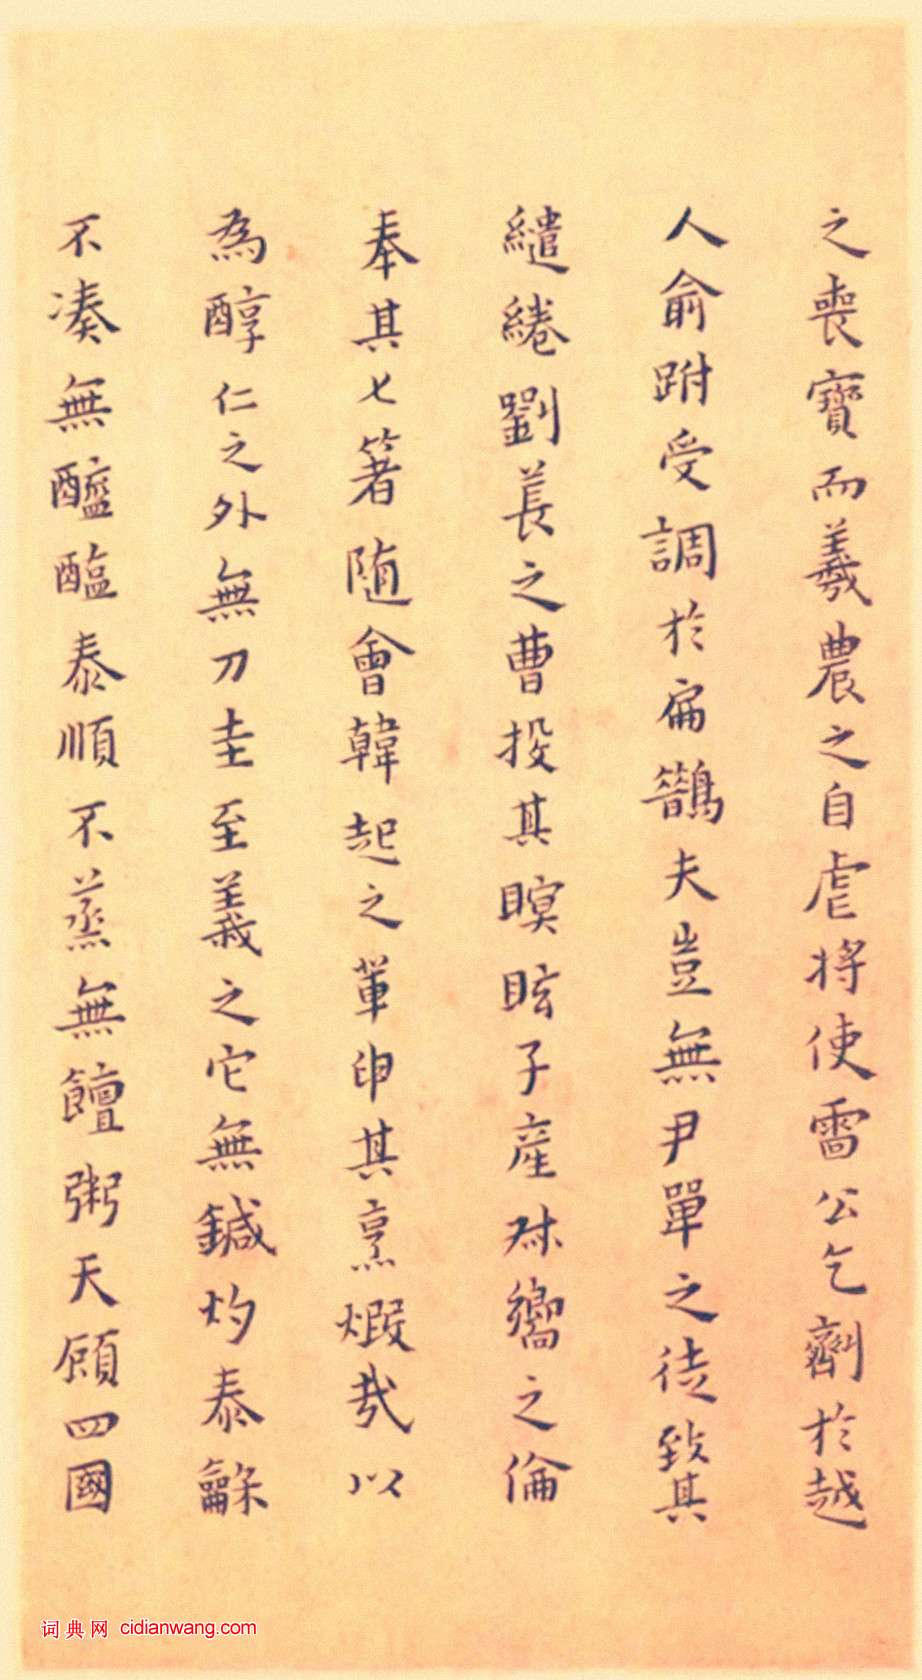 之喪寶而羲農之自虐將使雷公乞劑於越
人俞跗受調於扁鵲夫豈無尹單之徒致其
繾綣劉長之曹投其瞑眩子產叔嚮之倫
奉其匕箸隨會韓起之輩申其烹煆哉以
為醇仁之外無刀圭至義之它無鍼灼泰龢
不湊無醯醢泰順不蒸無饘粥天顧四國
词典网 cidianwang.com